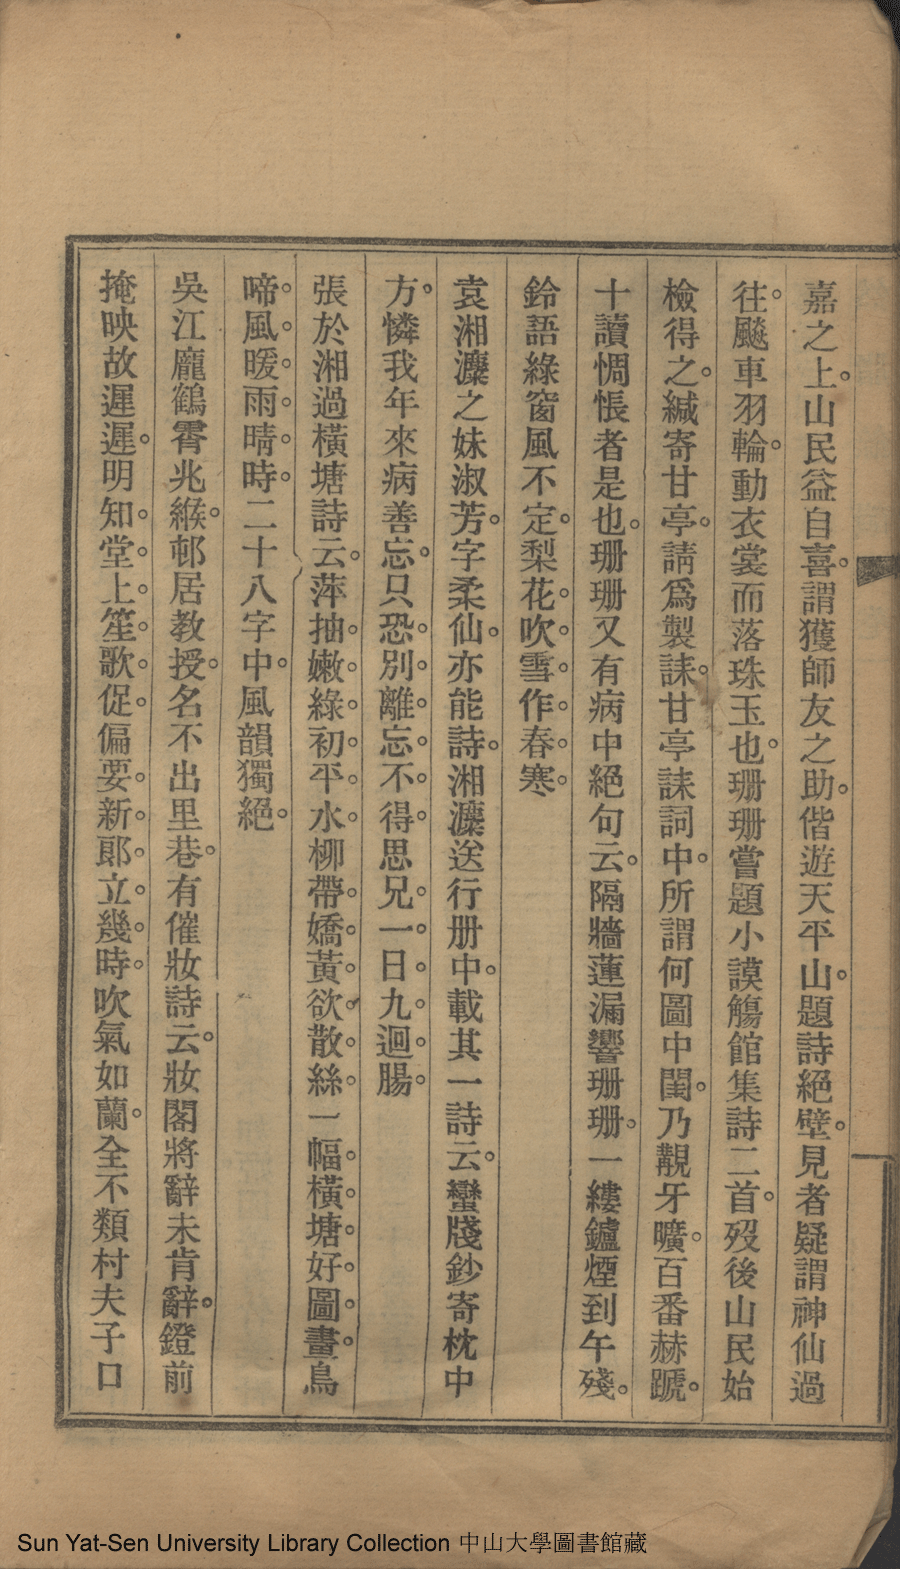 嘉之上。山民益自喜。謂獲師友之助。偕遊天平山。題詩絕壁。見者疑謂神仙過
往。飈車羽輪。動衣裳而落珠玉也。珊珊嘗題小謨觴館集詩二首。歿後山民始
檢得之。緘寄甘亭。請爲製誄。甘亭誄詞中。所謂何圖中閨。乃靚牙曠。百番赫蹏。
十讀惆悵者是也。珊珊又有病中絕句云。隔牆蓮漏響珊珊。一縷鑪煙到午殘。
鈴語綠窗風不定。梨花。吹。雪。作。春。寒。
袁湘灋之妹淑芳。字柔仙。亦能詩。湘灋送行册中。載其一詩云。蠻牋鈔寄枕中
方。憐我年來病善忘。只恐。別。離。忘。不。得。思兄。一。日。九。迴。腸。
張於湘過橫塘詩云。萍抽。嫩。綠。初。平。水。柳帶。嬌。黃。欲。散。絲。一幅。橫。塘。好。圖。畫。鳥
啼。風。暖。雨。晴。時。二十八字中。風韻獨絕。
吳江龐鶴霄兆緱。邨居教授。名不出里巷。有催妝詩云。妝閣將辭未肯辭。鐙前
掩映故遲遲。明知。堂。上。笙。歌。促。偏要。新。郎。立。幾。時。吹氣如蘭。全不類村夫子口
Sun Yat-Sen University Library Collection 中山大學圖書館藏